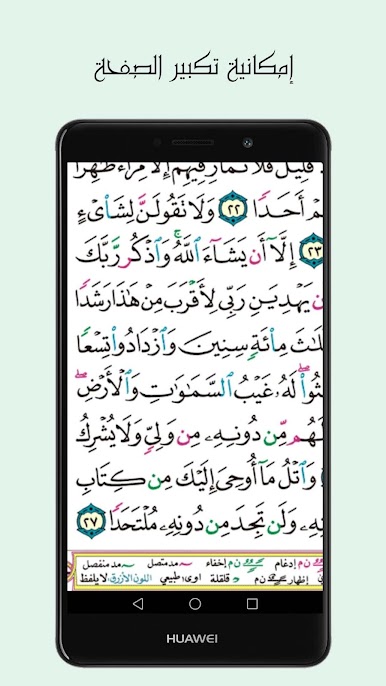 إمكانية تكبير الصفحة
قَلِيلٌ فَلَا تُمَارِ فِيهِمْ إِلَّا مِرَآءً ظَٰهِرًا
أَحَدًا ٢٢ وَلَا تَقُولَنَّ لِشَا۟ىْءٍ
٢٣ إِلَّآ أَن يَشَآءَ ٱللَّهُ ۚ وَٱذْكُر رَّبَّكَ
يَهْدِيَنِ رَبِّى لِأَقْرَبَ مِنْ هَٰذَا رَشَدًا
مِا۟ئَةٍ سِنِينَ وَٱزْدَادُوا۟ تِسْعًا
لَهُۥ غَيْبُ ٱلسَّمَٰوَٰتِ وَٱلْأَرْضِ ۖ
مِّن دُونِهِۦ مِن وَلِىٍّ وَلَا يُشْرِكُ
وَٱتْلُ مَآ أُوحِىَ إِلَيْكَ مِن كِتَابِ
وَلَن تَجِدَ مِن دُونِهِۦ مُلْتَحَدًا ٢٧
ن م إدغام ن م إخفاء مد متصل مد منفصل
إظهار ن م قلقلة اوى: طبيعي اللون الأزرق: لا يلفظ
HUAWEI